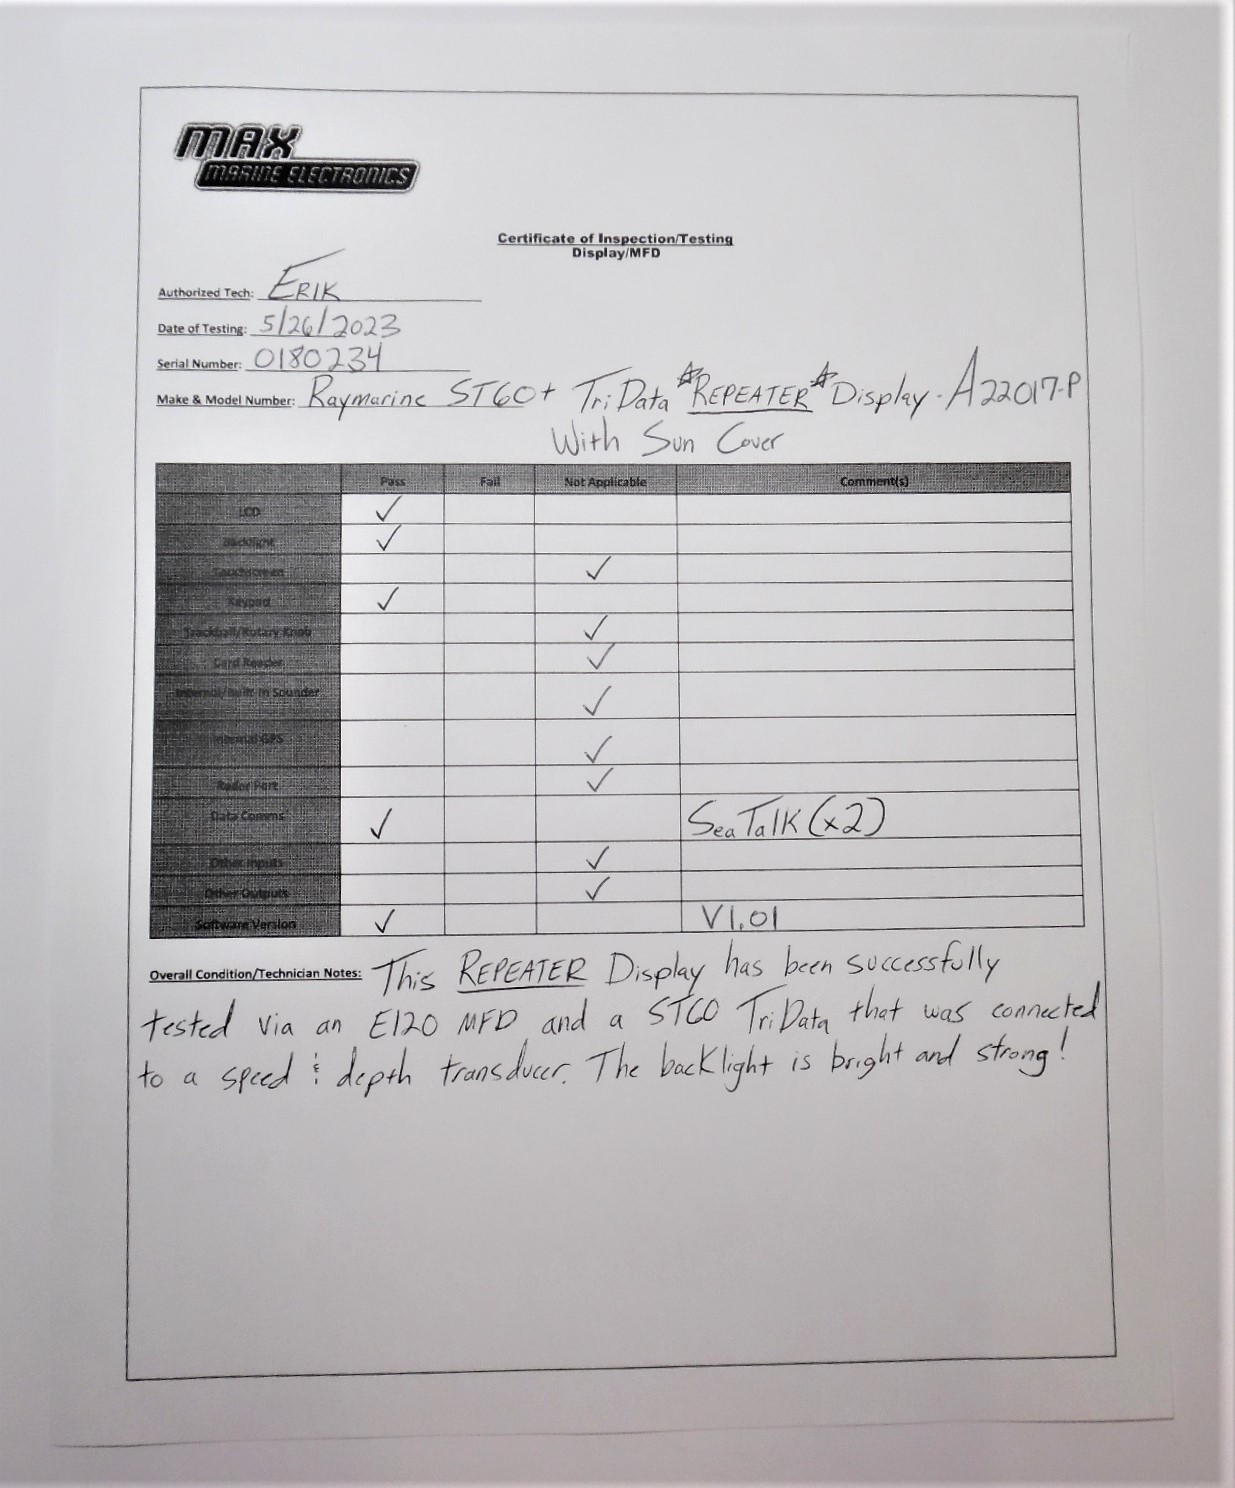 MAX
MARINE ELECTRONICS
Certificate of Inspection/Testing
Display/MFD
Authorized Tech: ERIK
Date of Testing: 5/26/2023
Serial Number: 0180234
Make & Model Number: Raymarine ST60+ TriData *REPEATER* Display - A22017-P
With Sun Cover
Pass Fail Not Applicable Comment(s)
LCD ✓
Backlight ✓
Touchscreen ✓
Keypad ✓
Trackball/Rotary Knob ✓
Card Reader ✓
Internal/Built In Sounder ✓
Internal GPS ✓
Radar Port ✓
Data Comms ✓ SeaTalk (x2)
Other Inputs ✓
Other Outputs ✓
Software Version ✓ V1.01
Overall Condition/Technician Notes: This REPEATER Display has been successfully
tested via an E120 MFD and a ST60 TriData that was connected
to a speed & depth transducer. The backlight is bright and strong!